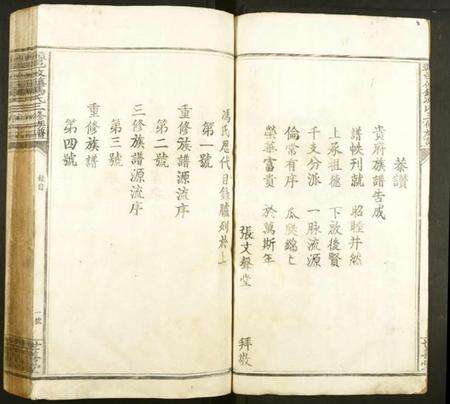 恭讃
貴府族譜告成
譜帙列就　昭睦井然
上承祖德　下啟後賢
千支分派　一脉流源
倫常有序　瓜瓞綿
榮華富貴　於萬斯年
張文
堂　拜
馮氏歷代目錄臚列於上
第一號
重修族譜源流序
第二號
三修族譜源流序
第三號
重修族譜
第四號
目
一號